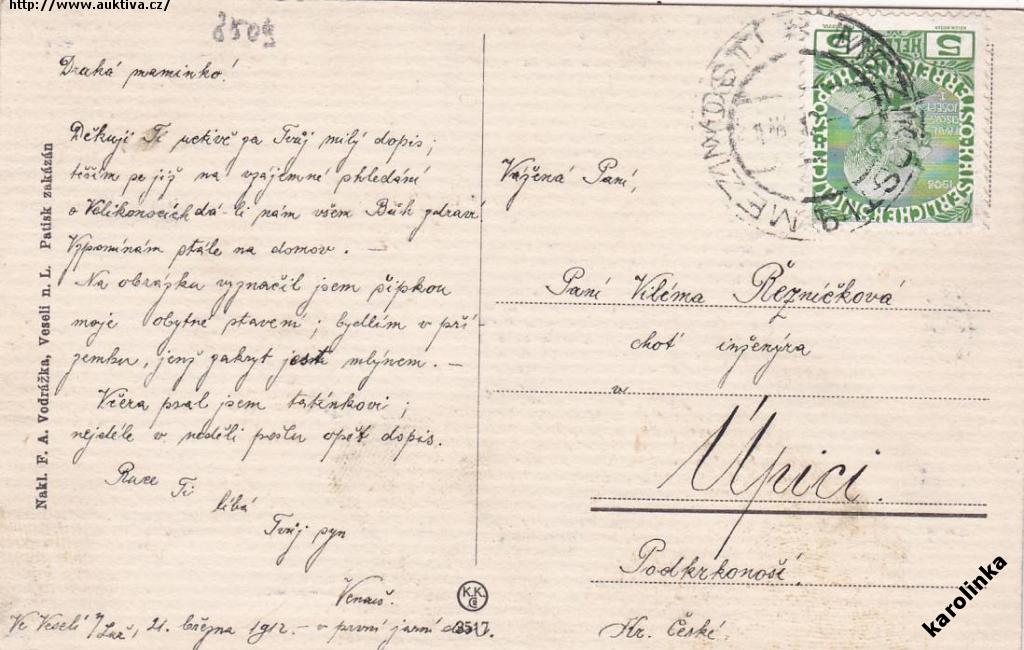 http://www.auktiva.cz/
8509
Drahá maminko!
Děkuji Ti uctivě za Tvůj milý dopis;
těším se již na vzájemné shledání
o Velikonocích dá-li nám všem Bůh zdraví
Vzpomínám stále na domov. –
Na obrázku vyznačil jsem šipkou
moje obytné stavení; bydlím v pří-
zemku, jenž zakryt jest mlýnem. –
Včera psal jsem tatínkovi;
nejdéle v neděli pošlu opět dopis.
Ruce
Ti
líbá
Tvůj syn
Ve Veselí n/Luž., 21. března 1912. – v první jarní den.
Nakl. F. A. Vodrážka, Veselí n. L. Patisk zakázán
K.K.
3517
Vážená Paní,
Paní Viléma Řezníčková
choť inženýra
v
Úpici.
Podkrkonoší
Kr. České.
5 HELLER 5
KAISERLICHE KÖNIGLICHE
1908
karolinka